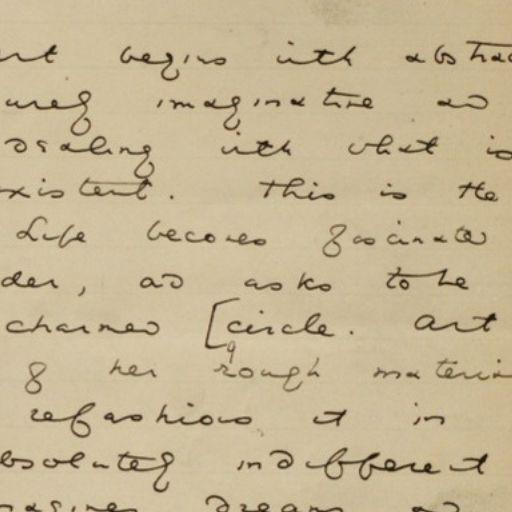 art begins with abstrac
urely imaginative and
dealing with what is
xistent. This is the
Life becomes fascinated
der, and asks to be
charmed [circle. Art
of her rough materia
refashions it in
bsolutely indifferent
magines, dreams and